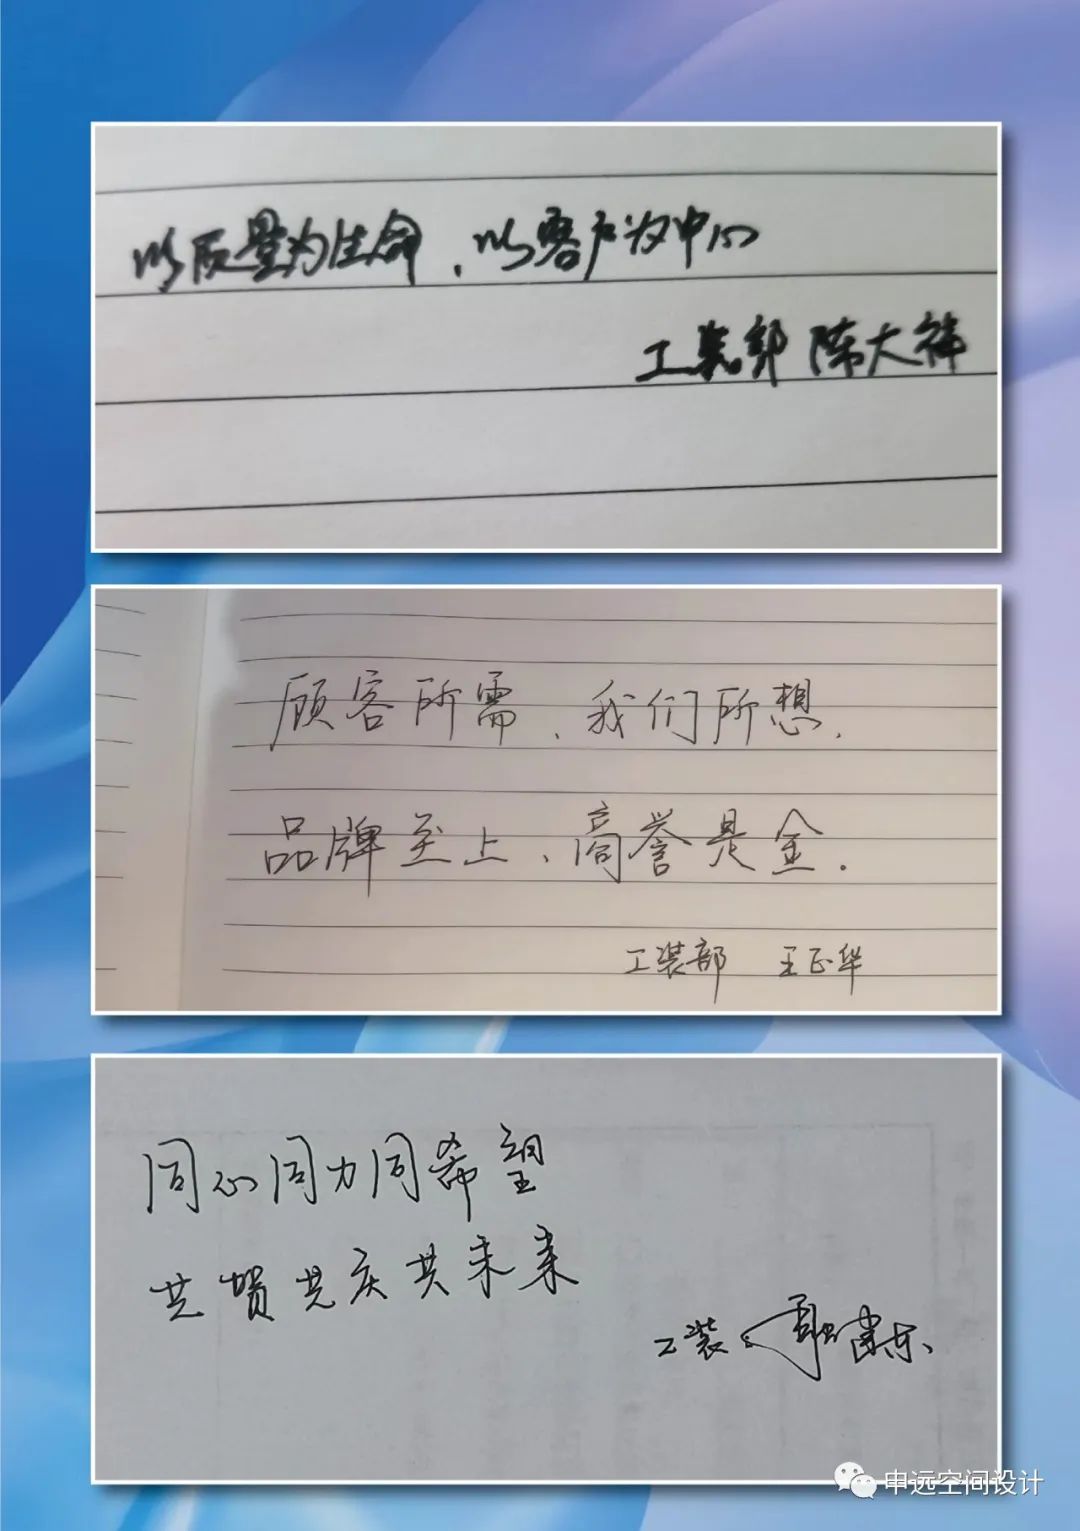 以质量为生命，以客户为中心
工装部 陈大祥
顾客所需、我们所想.
品牌至上、商誉是金.
工装部 王正华
同心同力同希望
共贺共庆共未来
工装
申远空间设计